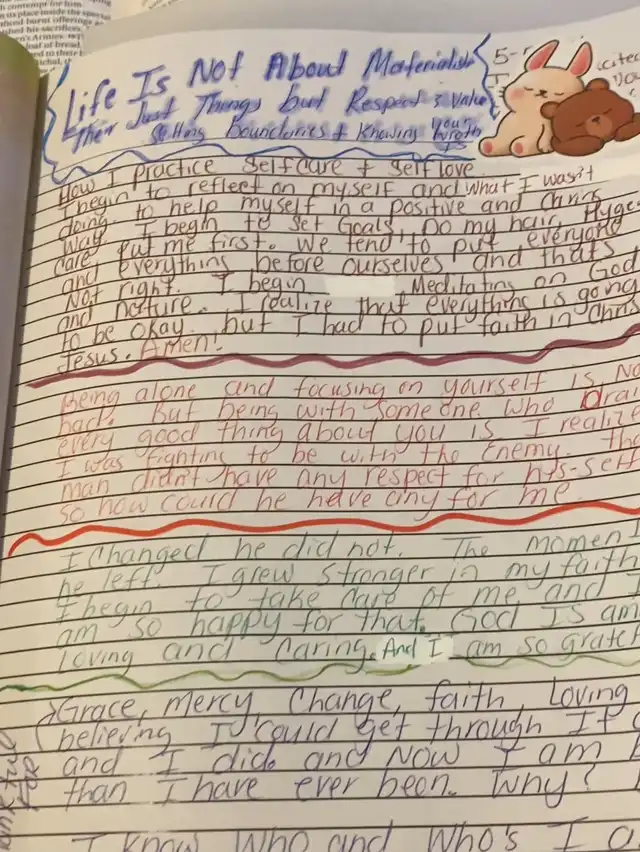 t contempt for him
its place inside the
burnt offerings
shed his sacrifices.
Life Is Not About Materialistic
Their Just Things but Respect & Value
Setting Boundaries & Knowing Your Wroth
Is
5-
How I Practice Selfcare + Self love
I begin to reflect on myself and what I wasn't
doing. to help myself in a positive and Chris
Way. I begin to set Goals, Do my hair, Hyge
care put me first. We tend to put everyone
and everything before ourselves and thats
Not right. I begin Meditating on God
and norture. I realize that everything is going
to be okay. but I had to put faith in Chris
Jesus. Amen!
Being alone and focusing on yourself is No
bad. But being with someone who Drai
every good thing about you is I realize
I was fighting to be with the Enemy. Tha
man didn't have any respect for his-self
so how could he have any for me.
I Changed he did not. The momen
he left. I grew stronger in my faith
I begin to take care of me and I
am so happy for that. God Is am
Loving and Caring. And I am so gratef
Grace, mercy, Change, faith, Loving
believing I could get through It
and I did. and Now I am
than I have ever been. Why?
I Know Who and Who's I a